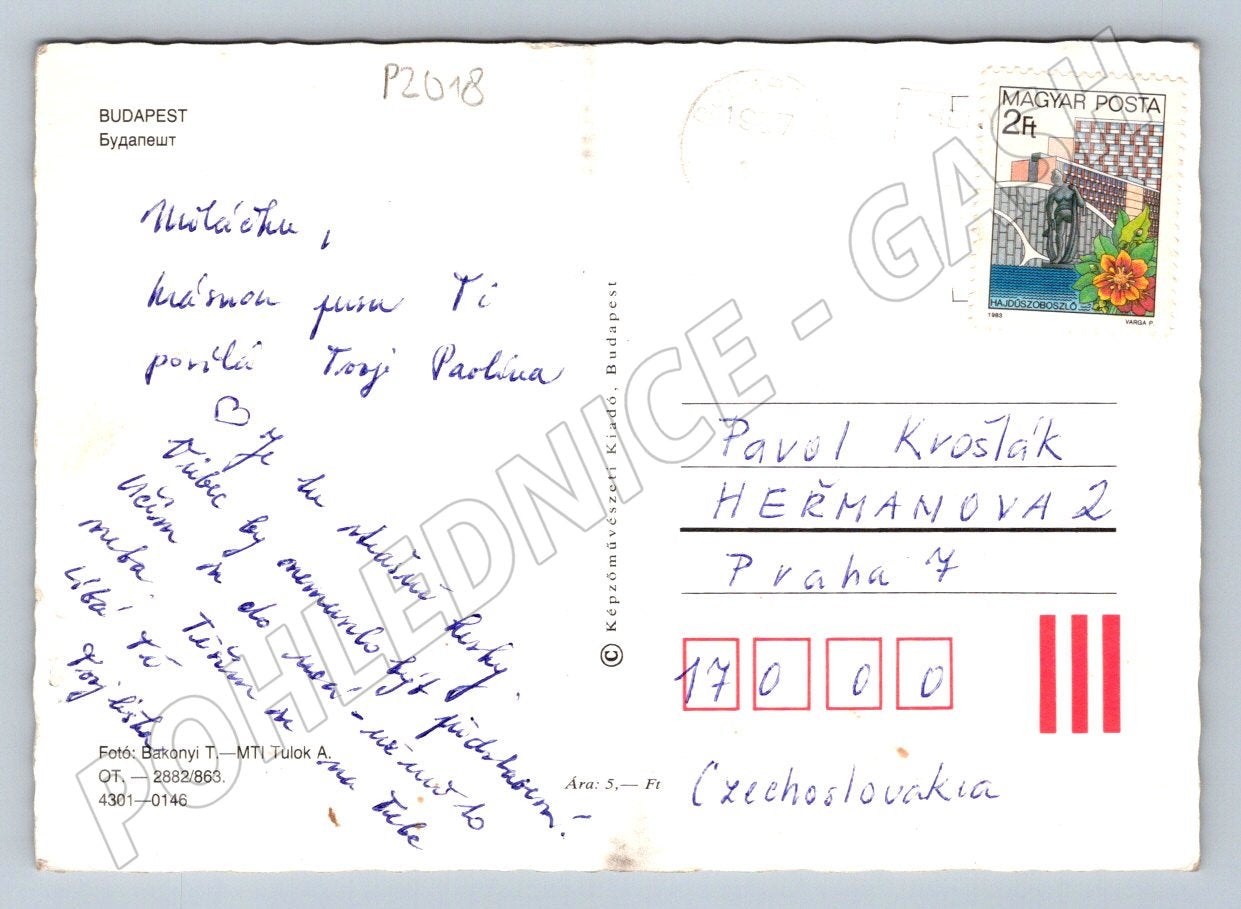 P2018
BUDAPEST
Будапешт
Miláčku,
krásnou pusu Ti
posílá Tvoje Pavlína
Je tu strašně hezky,
Vůbec by nemuselo být představení.
Učím se do - už mě to
nebaví. Těším se na Tebe
líbá Tě
Tvoje
Fotó: Bakonyi T.—MTI Tulok A.
OT. — 2882/863.
4301—0146
Ára: 5,— Ft
© Képzőművészeti Kiadó, Budapest
MAGYAR POSTA
2Ft
HAJDÚSZOBOSZLÓ
1983 VARGA P.
Pavol Krošlák
HEŘMANOVA 2
Praha 7
170 00
Czechoslovakia
POHLEDNICE - GASH